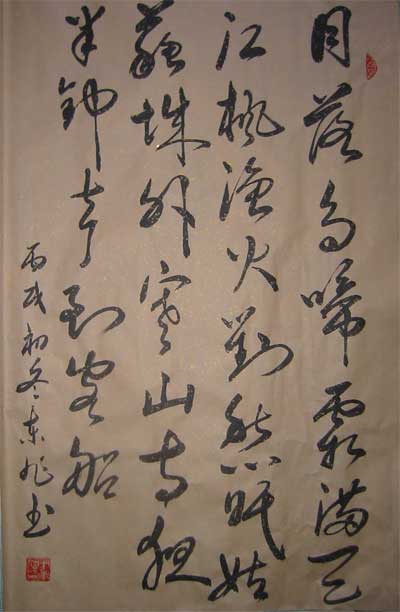 月落乌啼霜满天
江枫渔火對愁眠姑
蘇城外寒山寺夜
半钟声到客船
丙戌初冬东旭书